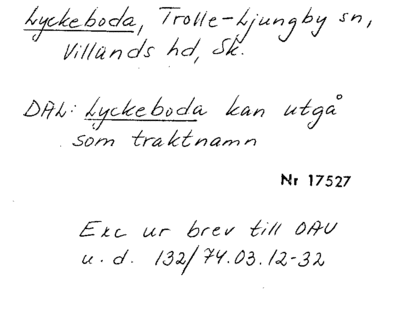 Lyckeboda, Trolle-Ljungby sn,
Villands hd, Sk.
DAL: Lyckeboda kan utgå
som traktnamn
Nr 17527
Exc ur brev till OAU
u.d. 132/74.03.12-32